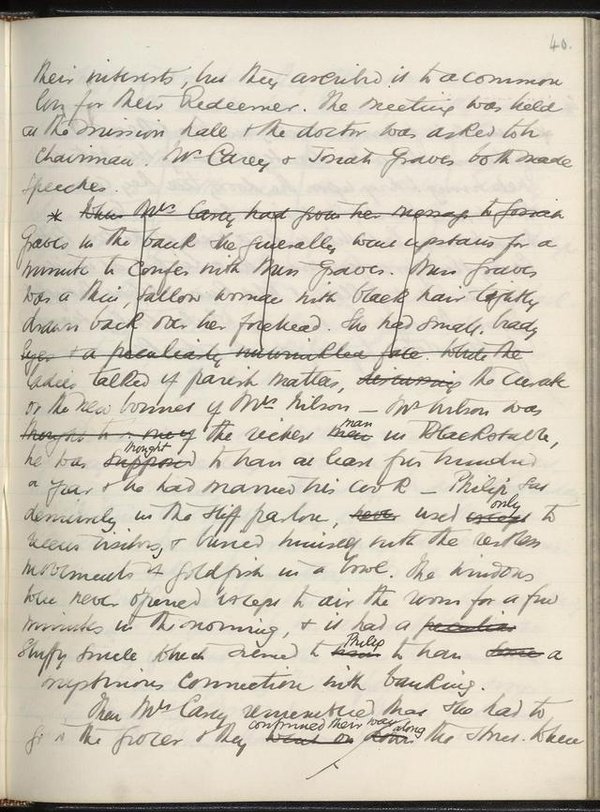 40.
their interests, but they ascribed it to a common
love for their Redeemer. The meeting was held
at the mission hall & the doctor was asked to be
chairman. Mr Carey & Josiah Graves both made
speeches.
* When Mrs Carey had given her message to Josiah
Graves in the bank she generally went upstairs for a
minute to confer with Miss Graves. Miss Graves
was a thin, sallow woman with black hair tightly
drawn back over her forehead. She had small, beady
eyes & a peculiarly face. While the
ladies talked of parish matters, discussing the curate
or the new bonnet of Mrs Wilson — Mr Wilson was
thought to the richest men man in Blackstable,
he was supposed thought to have at least five hundred
a year & he had married his cook — Philip sat
demurely in the stiff parlour, never used except only to
receive visitors, & busied himself with the restless
movements of goldfish in a bowl. The windows
were never opened except to air the room for a few
minutes in the morning, & it had a peculiar
stuffy smell which seemed to him Philip to have some a
mysterious connection with banking.
Then Mrs Carey remembered that she had to
go to the grocer & they went on continued their way down along the street. When